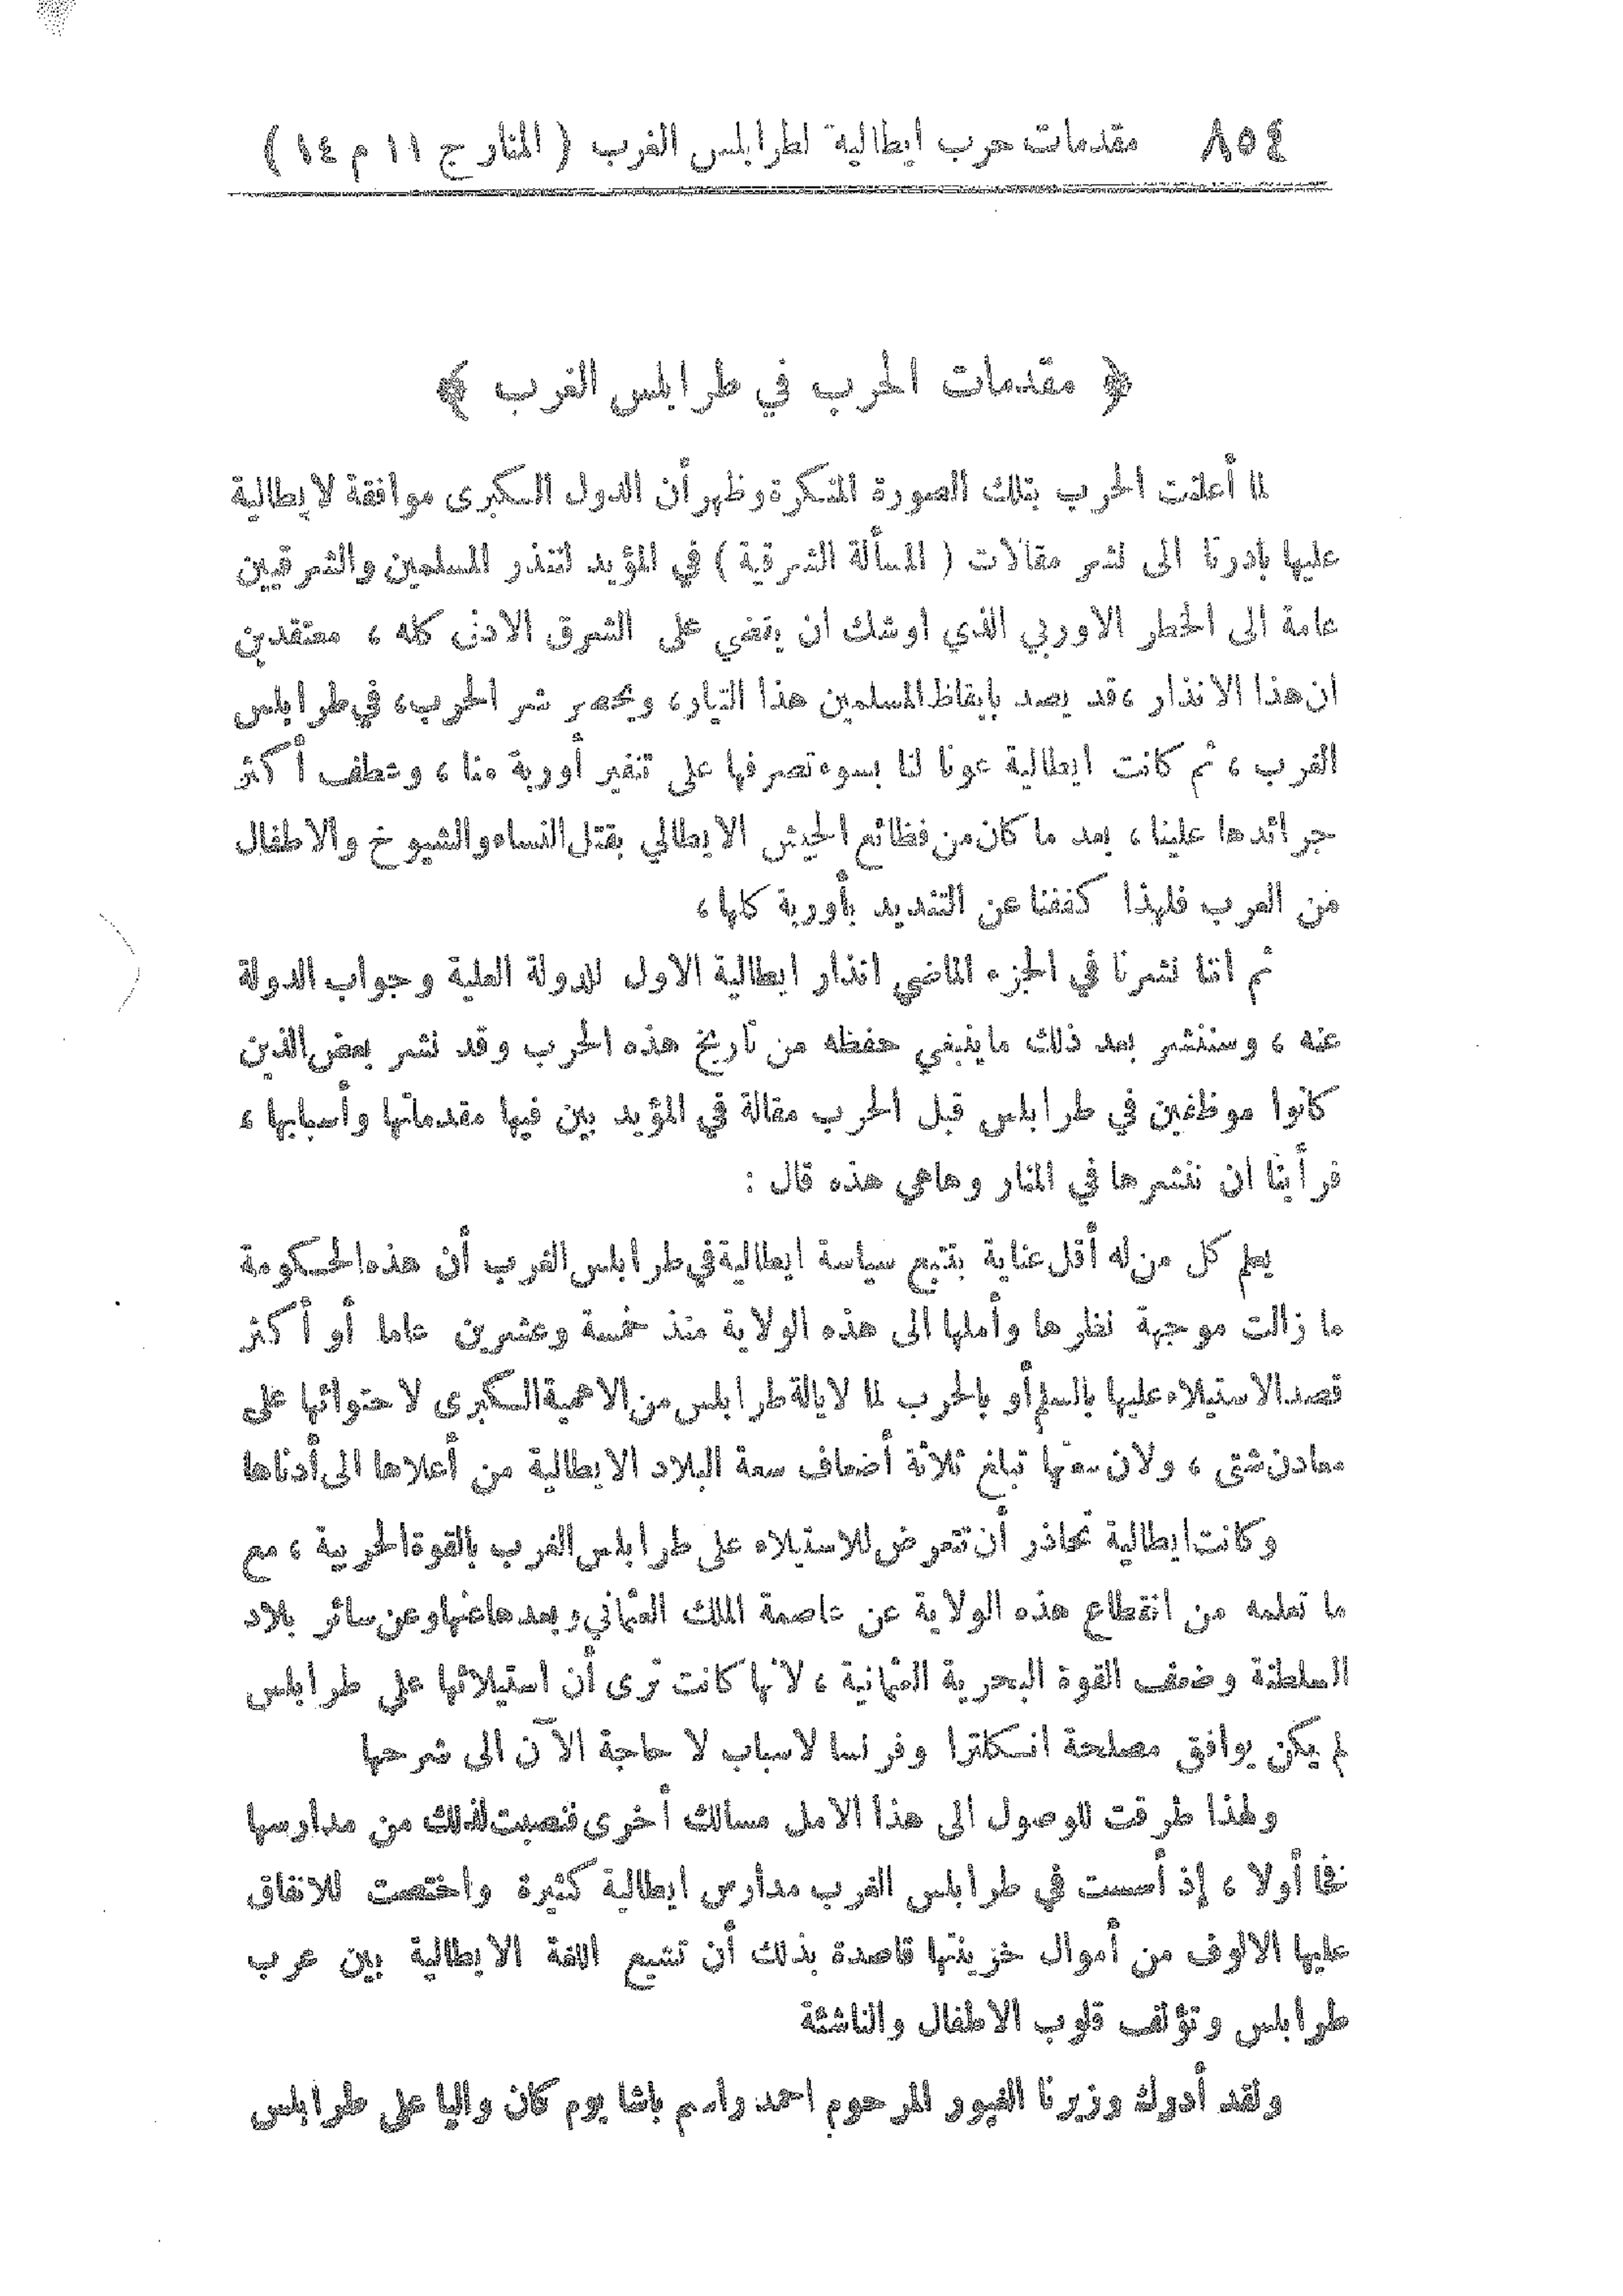 ٨٥٤ مقدمات حرب ايطالية لطرابلس الغرب ( المنار ج ١١ م ١٤ )
﴿ مقدمات الحرب في طرابلس الغرب ﴾
لما أعلنت الحرب بتلك الصورة المنكرة وظهر أن الدول الكبرى موافقة لايطالية
عليها بادرنا الى نشر مقالات ( المسألة الشرقية ) في المؤيد لتنذر المسلمين والشرقيين
عامة الى الخطر الاوربي الذي اوشك ان يقضي على الشرق الادنى كله ، معتقدين
ان هذا الانذار ، قد يصد بايقاظ المسلمين هذا التيار ، ويحصر شر الحرب ، في طرابلس
الغرب ، ثم كانت ايطالية عونا لنا بسوء تصرفها على تنفير أوربة منا ، وعطف أكثر
جرائدها علينا ، بعد ما كان من فظائع الجيش الايطالي بقتل النساء والشيوخ والاطفال
من العرب فلهذا كففنا عن التنديد بأوربة كلها ،
ثم اننا نشرنا في الجزء الماضي انذار ايطالية الاول للدولة العلية وجواب الدولة
عنه ، وسننشر بعد ذلك ما ينبغي حفظه من تاريخ هذه الحرب وقد نشر بعض الذين
كانوا موظفين في طرابلس قبل الحرب مقالة في المؤيد بين فيها مقدماتها وأسبابها ،
فرأينا ان ننشرها في المنار وهاهي هذه قال :
يعلم كل من له أقل عناية بتتبع سياسة ايطالية في طرابلس الغرب أن هذه الحكومة
ما زالت موجهة نظرها وأملها الى هذه الولاية منذ خمسة وعشرين عاما أو أكثر
قصد الاستيلاء عليها بالسلم أو بالحرب لما لايالة طرابلس من الاهمية الكبرى لاحتوائها على
معادن شتى ، ولان سعتها تبلغ ثلاثة أضعاف سعة البلاد الايطالية من أعلاها الى أدناها
وكانت ايطالية تحاذر أن تتعرض للاستيلاء على طرابلس الغرب بالقوة الحربية ، مع
ما تعلمه من انقطاع هذه الولاية عن عاصمة الملك العثماني وبعدها عنها وعن سائر بلاد
السلطنة وضعف القوة البحرية العثمانية ، لانها كانت ترى أن استيلائها على طرابلس
لم يكن يوافق مصلحة انكلترا وفرنسا لاسباب لا حاجة الآن الى شرحها
ولهذا طرقت للوصول الى هذا الامل مسالك أخرى فنصبت لذلك من مدارسها
فخا أولا ، إذ أسست في طرابلس الغرب مدارس ايطالية كثيرة واختصت للانفاق
عليها الالوف من أموال خزينتها قاصدة بذلك أن تشيع اللغة الايطالية بين عرب
طرابلس وتؤلف قلوب الاطفال والناشئة
ولقد أدرك وزيرنا الغيور المرحوم احمد راسم باشا يوم كان واليا على طرابلس